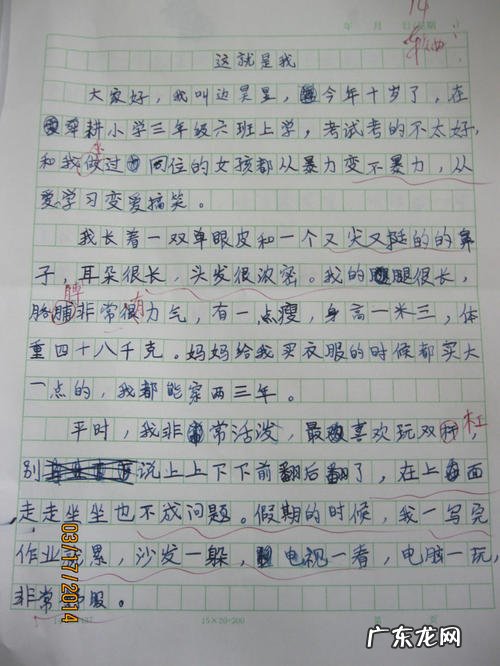 14
年 月 日
这就是我
大家好，我叫边昊星，今年十岁了，在
莘耕小学三年级六班上学，考试考的不太好，
和我做过同位的女孩都从暴力变不暴力，从
爱学习变爱搞笑。
我长着一双单眼皮和一个又尖又挺的的鼻
子，耳朵很长，头发很浓密。我的腿很长，
胳脾非常很有力气，有一点瘦，身高一米三，体
重四十八千克。妈妈给我买衣服的时候都买大
一点的，我都能穿两三年。
平时，我非常活泼，最喜欢玩双杠，
别说上上下下前翻后翻了，在上面
走走坐坐也不成问题。假期的时候，我一写完
作业累，沙发一躲，电视一看，电脑一玩，
非常服。
03/17/2014
15×20=300
广东龙网